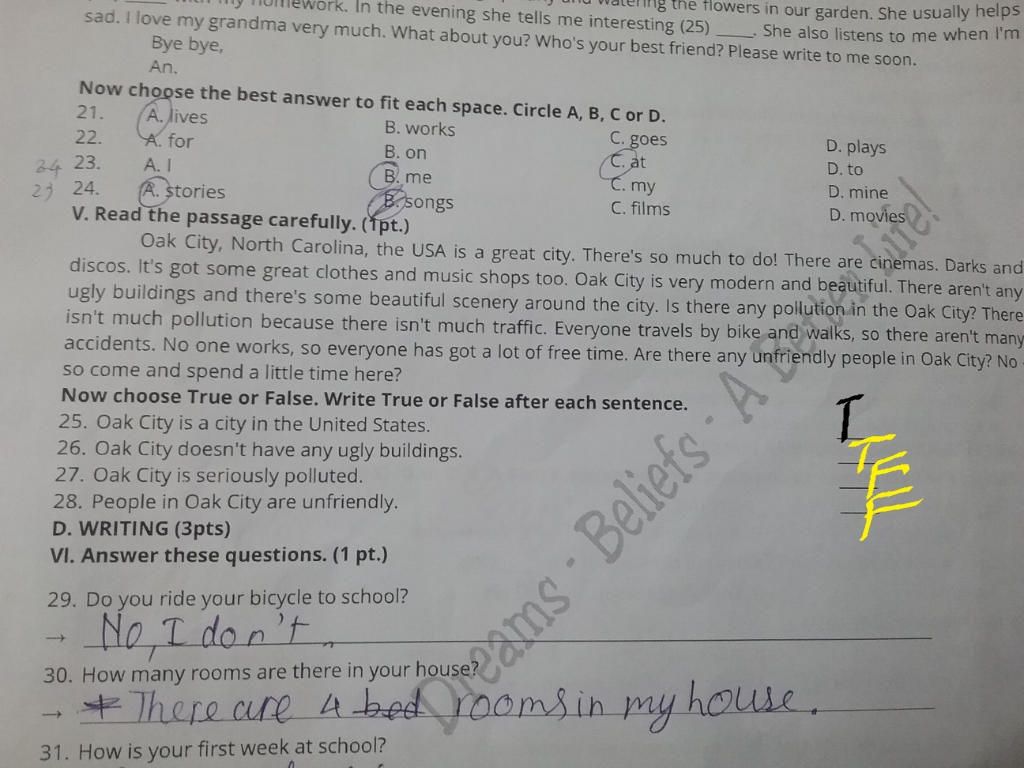 with my homework. In the evening she tells me interesting (25) ____. She also listens to me when I'm
and watering the flowers in our garden. She usually helps
sad. I love my grandma very much. What about you? Who's your best friend? Please write to me soon.
Bye bye,
An.
Now choose the best answer to fit each space. Circle A, B, C or D.
21. A. lives B. works C. goes D. plays
22. A. for B. on C. at D. to
24 23. A. I B. me C. my D. mine
23 24. A. stories B. songs C. films D. movies
V. Read the passage carefully. (1pt.)
Oak City, North Carolina, the USA is a great city. There's so much to do! There are cinemas. Darks and
discos. It's got some great clothes and music shops too. Oak City is very modern and beautiful. There aren't any
ugly buildings and there's some beautiful scenery around the city. Is there any pollution in the Oak City? There
isn't much pollution because there isn't much traffic. Everyone travels by bike and walks, so there aren't many
accidents. No one works, so everyone has got a lot of free time. Are there any unfriendly people in Oak City? No -
so come and spend a little time here?
Now choose True or False. Write True or False after each sentence.
25. Oak City is a city in the United States. T
26. Oak City doesn't have any ugly buildings. T
27. Oak City is seriously polluted. F
28. People in Oak City are unfriendly. F
D. WRITING (3pts)
VI. Answer these questions. (1 pt.)
29. Do you ride your bicycle to school?
→ No, I don't
30. How many rooms are there in your house?
→ There are 4 bed rooms in my house.
31. How is your first week at school?
Dreams - Beliefs - A Better Life!